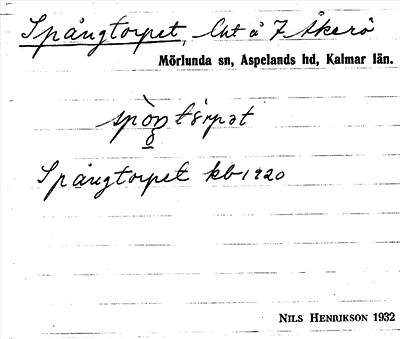 Spångtorpet, lht å 7 Åkerö
Mörlunda sn, Aspelands hd, Kalmar län.
spòŋtórpət
o
Spångtorpet kb 1920
NILS HENRIKSON 1932